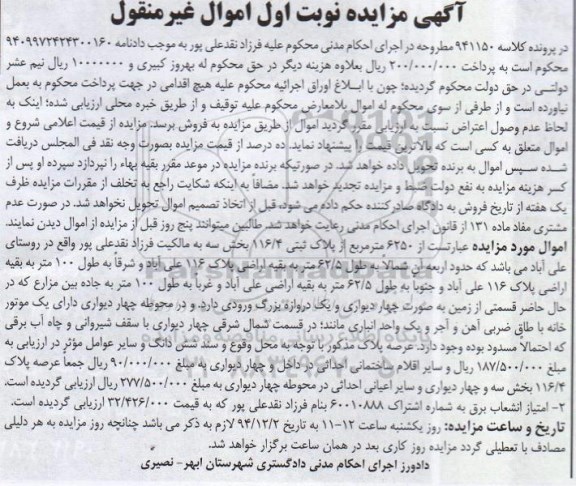 آگهی مزایده نوبت اول اموال غیرمنقول
در پرونده کلاسه ۹۴۱۱۵۰ مطروحه در اجرای احکام مدنی محکوم علیه فرزاد نقدعلی پور به موجب دادنامه ۹۴۰۹۹۷۲۴۲۴۳۰۰۱۶۰
محکوم است به پرداخت ۲۰۰/۰۰۰/۰۰۰ ریال بعلاوه هزینه دیگر در حق محکوم له بهروز کبیری و ۱۰۰۰۰۰۰۰ ریال نیم عشر
دولتی در حق دولت محکوم گردیده؛ چون با ابلاغ اوراق اجرائیه محکوم علیه هیچ اقدامی در جهت پرداخت محکوم به بعمل
نیاورده است و از طرفی از سوی محکوم له اموال بلامعارض محکوم علیه توقیف و از طریق خبره محلی ارزیابی شده؛ اینک به
لحاظ عدم وصول اعتراض نسبت به ارزیابی مقرر گردید اموال از طریق مزایده به فروش برسد. مزایده از قیمت اعلامی شروع و
اموال متعلق به کسی است که بالاترین قیمت را پیشنهاد نماید. ده درصد از قیمت مزایده بصورت وجه نقد فی المجلس دریافت
شده سپس اموال به برنده تحویل داده خواهد شد. در صورتیکه برنده مزایده در موعد مقرر بقیه بهاء را نپردازد سپرده او پس از
کسر هزینه مزایده به نفع دولت ضبط و مزایده تجدید خواهد شد. مضافاً به اینکه شکایت راجع به تخلف از مقررات مزایده ظرف
یک هفته از تاریخ فروش به دادگاه صادر کننده حکم داده می شود، قبل از اتخاذ تصمیم اموال تحویل نخواهد شد. در صورت عدم
مشتری مفاد ماده ۱۳۱ از قانون اجرای احکام مدنی رعایت خواهد شد. طالبین میتوانند پنج روز قبل از مزایده از اموال دیدن نمایند.
اموال مورد مزایده عبارتست از ۶۲۵۰ مترمربع از پلاک ثبتی ۱۱۶/۴ بخش سه به مالکیت فرزاد نقدعلی پور واقع در روستای
علی آباد می باشد که حدود اربعه آن شمالاً به طول ۶۲/۵ متر به بقیه اراضی پلاک ۱۱۶ علی آباد و شرقاً به طول ۱۰۰ متر به بقیه
اراضی پلاک ۱۱۶ علی آباد و جنوبا به طول ۶۲/۵ متر به بقیه اراضی علی آباد و غرباً به طول ۱۰۰ متر به جاده بین مزارع که در
حال حاضر قسمتی از زمین به صورت چهار دیواری و یک دروازه بزرگ ورودی دارد. و در محوطه چهار دیواری دارای یک موتور
خانه با طاق ضربی آهن و آجر و یک واحد انباری مانند؛ در قسمت شمال شرقی چهار دیواری با سقف شیروانی و چاه آب برقی
که احتمالاً مسدود بوده وجود دارد. عرصه پلاک مذکور با توجه به محل وقوع و سند شش دانگ و سایر عوامل مؤثر در ارزیابی به
مبلغ ۱۸۷/۵۰۰/۰۰۰ ریال و سایر اقلام ساختمانی احداثی در داخل و چهار دیواری به مبلغ ۹۰/۰۰۰/۰۰۰ ریال جمعاً عرصه پلاک
۱۱۶/۴ بخش سه و چهار دیواری و سایر اعیانی احداثی در محوطه چهار دیواری به مبلغ ۲۷۷/۵۰۰/۰۰۰ ریال ارزیابی گردیده است.
۲- امتیاز انشعاب برق به شماره اشتراک ۶۰۰۱۰۸۸۸ بنام فرزاد نقدعلی پور که به قیمت ۳۲/۴۲۶/۰۰۰ ارزیابی گردیده است.
تاریخ و ساعت مزایده: روز یکشنبه ساعت ۱۲-۱۱ به تاریخ ۹۴/۱۲/۲ لازم به ذکر می باشد چنانچه روز مزایده به هر دلیلی
مصادف با تعطیلی گردد مزایده روز کاری بعد در همان ساعت برگزار خواهد شد.
دادورز اجرای احکام مدنی دادگستری شهرستان ابهر- نصیری